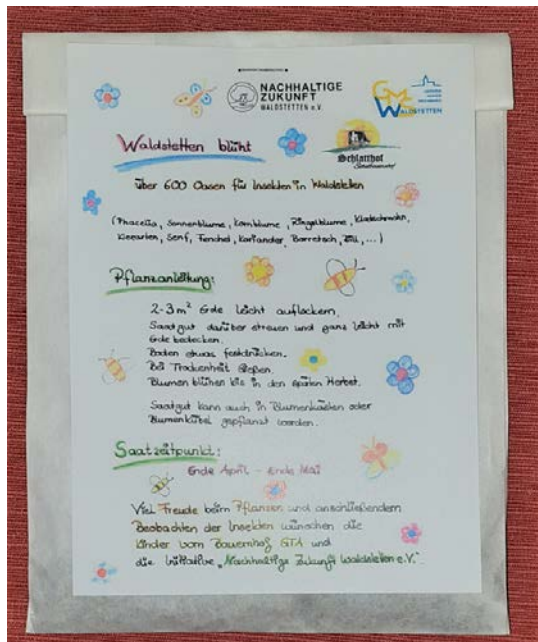 NACHHALTIGE
ZUKUNFT
WALDSTETTEN e.V.
WALDSTETTEN
Waldstetten blüht
Schlatthof
über 600 Oasen für Insekten in Waldstetten
(Phacelia, Sonnenblume, Kornblume, Ringelblume, Klatschmohn,
Kleearten, Senf, Fenchel, Koriander, Borretsch, Dill, ...)
Pflanzanleitung:
2-3 m² Erde leicht auflockern.
Saatgut darüber streuen und ganz leicht mit
Erde bedecken.
Boden etwas festdrücken.
Bei Trockenheit gießen.
Blumen blühen bis in den späten Herbst.
Saatgut kann auch in Blumenkästen oder
Blumenkübel gepflanzt werden.
Saatzeitpunkt:
Ende April - Ende Mai
Viel Freude beim Pflanzen und anschließendem
Beobachten der Insekten wünschen die
Kinder vom Bauernhof GTA und
die Initiative „Nachhaltige Zukunft Waldstetten e.V."